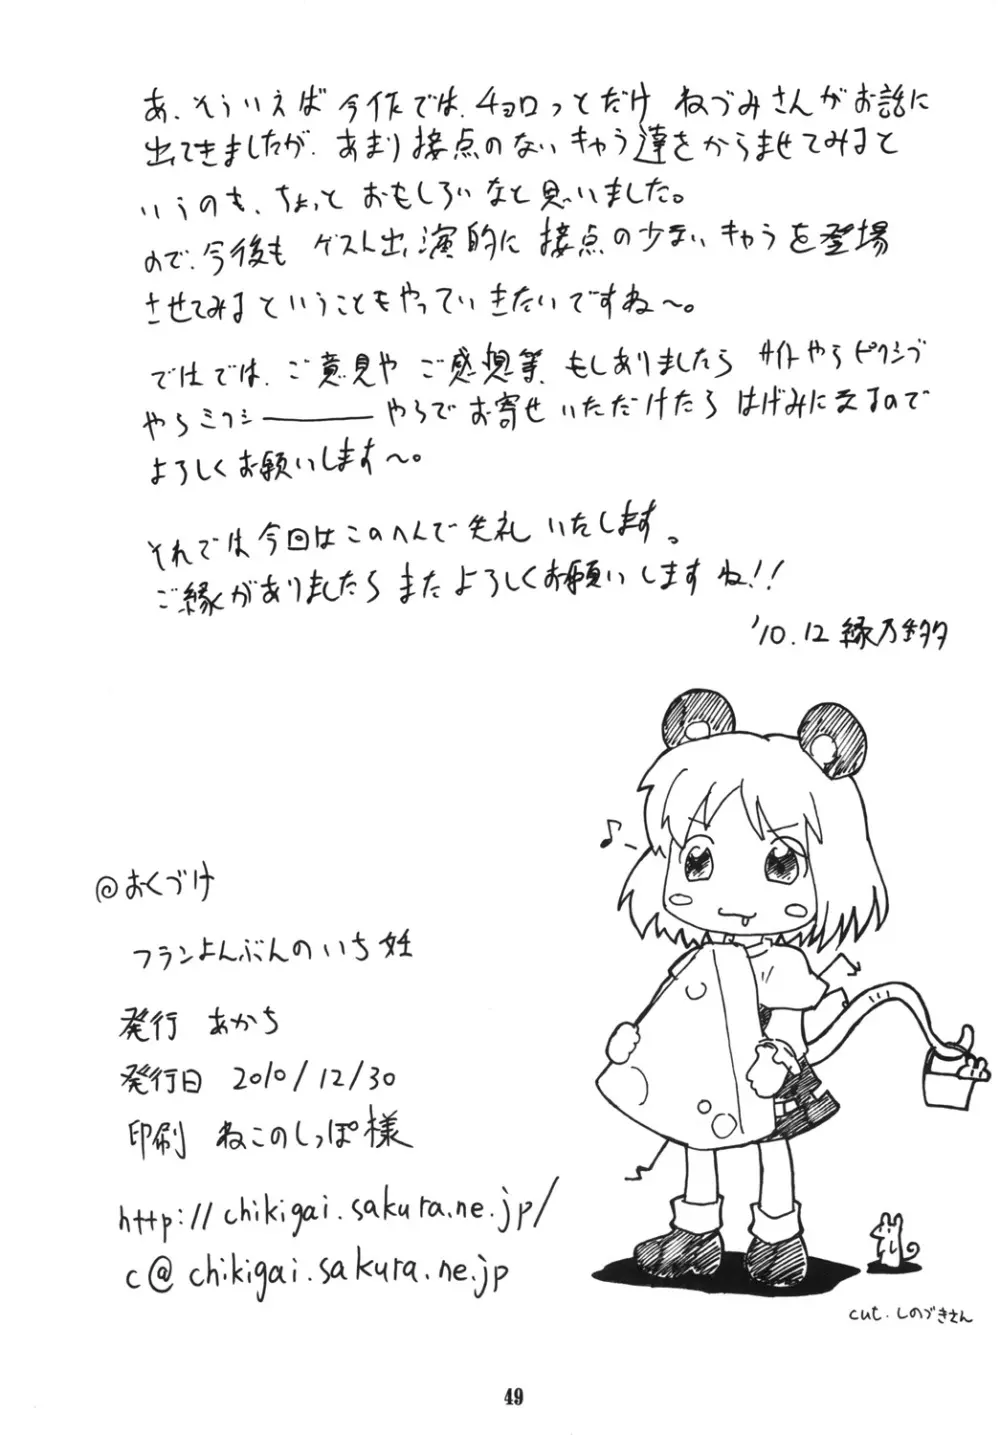 あ、そういえば今作では、チョロっとだけ ねづみさんがお話に
出てきましたが、あまり接点のないキャラ達をからませてみると
いうのも、ちょっと おもしろいなと思いました。
ので、今後も ゲスト出演的に 接点の少ないキャラを登場
させてみるということもやっていきたいですね～。
ではでは、ご意見や ご感想等、もしありましたら サイトやらピクシブ
やらミクシーーーーやらでお寄せいただけたら はげみになるので
よろしくお願いします～。
それでは今回はこのへんで失礼いたします。
ご縁がありましたら またよろしくお願いしますね!!
'10.12 縁乃
♪
@おくづけ
フランよんぶんのいち 妊
発行 あかち
発行日 2010/12/30
印刷 ねこのしっぽ様
http://chikigai.sakura.ne.jp/
c@chikigai.sakura.ne.jp
cut. しのづきさん
49